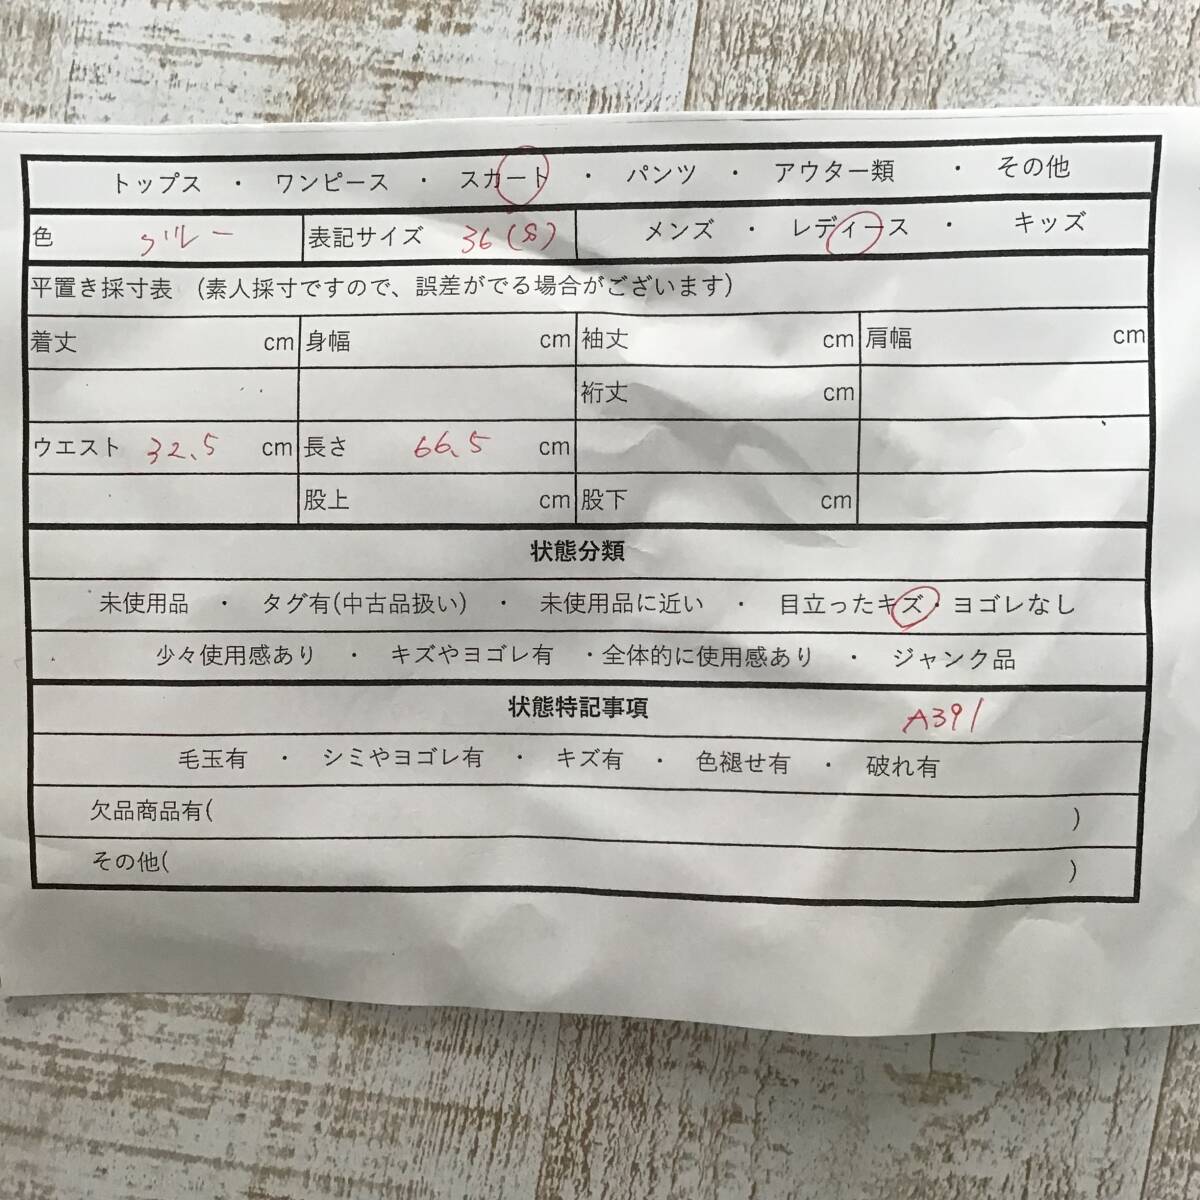 トップス ・ ワンピース ・ スカート ・ パンツ ・ アウター類 ・ その他
色 ブルー 表記サイズ 36(S) メンズ ・ レディース ・ キッズ
平置き採寸表 (素人採寸ですので、誤差がでる場合がございます)
着丈 cm 身幅 cm 袖丈 cm 肩幅 cm
裄丈 cm
ウエスト 32.5 cm 長さ 66.5 cm
股上 cm 股下 cm
状態分類
未使用品 ・ タグ有(中古品扱い) ・ 未使用品に近い ・ 目立ったキズ・ヨゴレなし
少々使用感あり ・ キズやヨゴレ有 ・全体的に使用感あり ・ ジャンク品
状態特記事項 A391
毛玉有 ・ シミやヨゴレ有 ・ キズ有 ・ 色褪せ有 ・ 破れ有
欠品商品有( )
その他( )